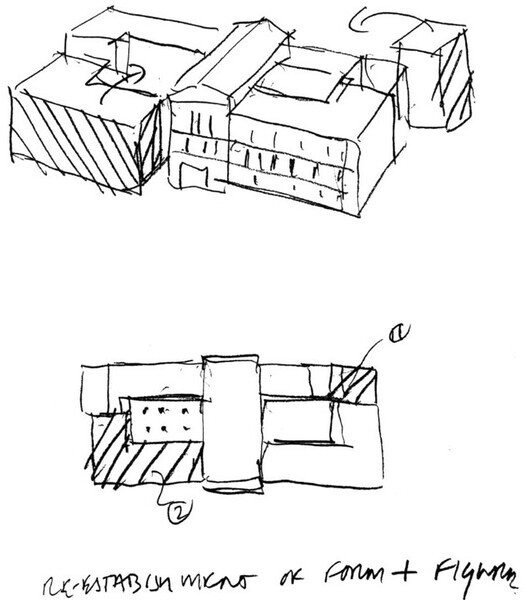 1
2
RE-ESTABLISHMENT OF FORM + FIGURE